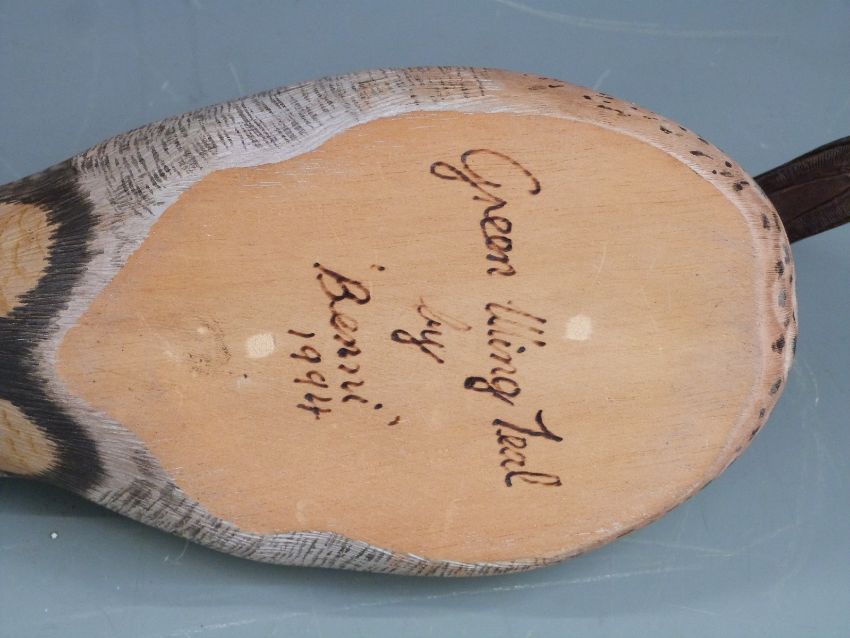 Green Wing Teal
by
"Benni"
1994